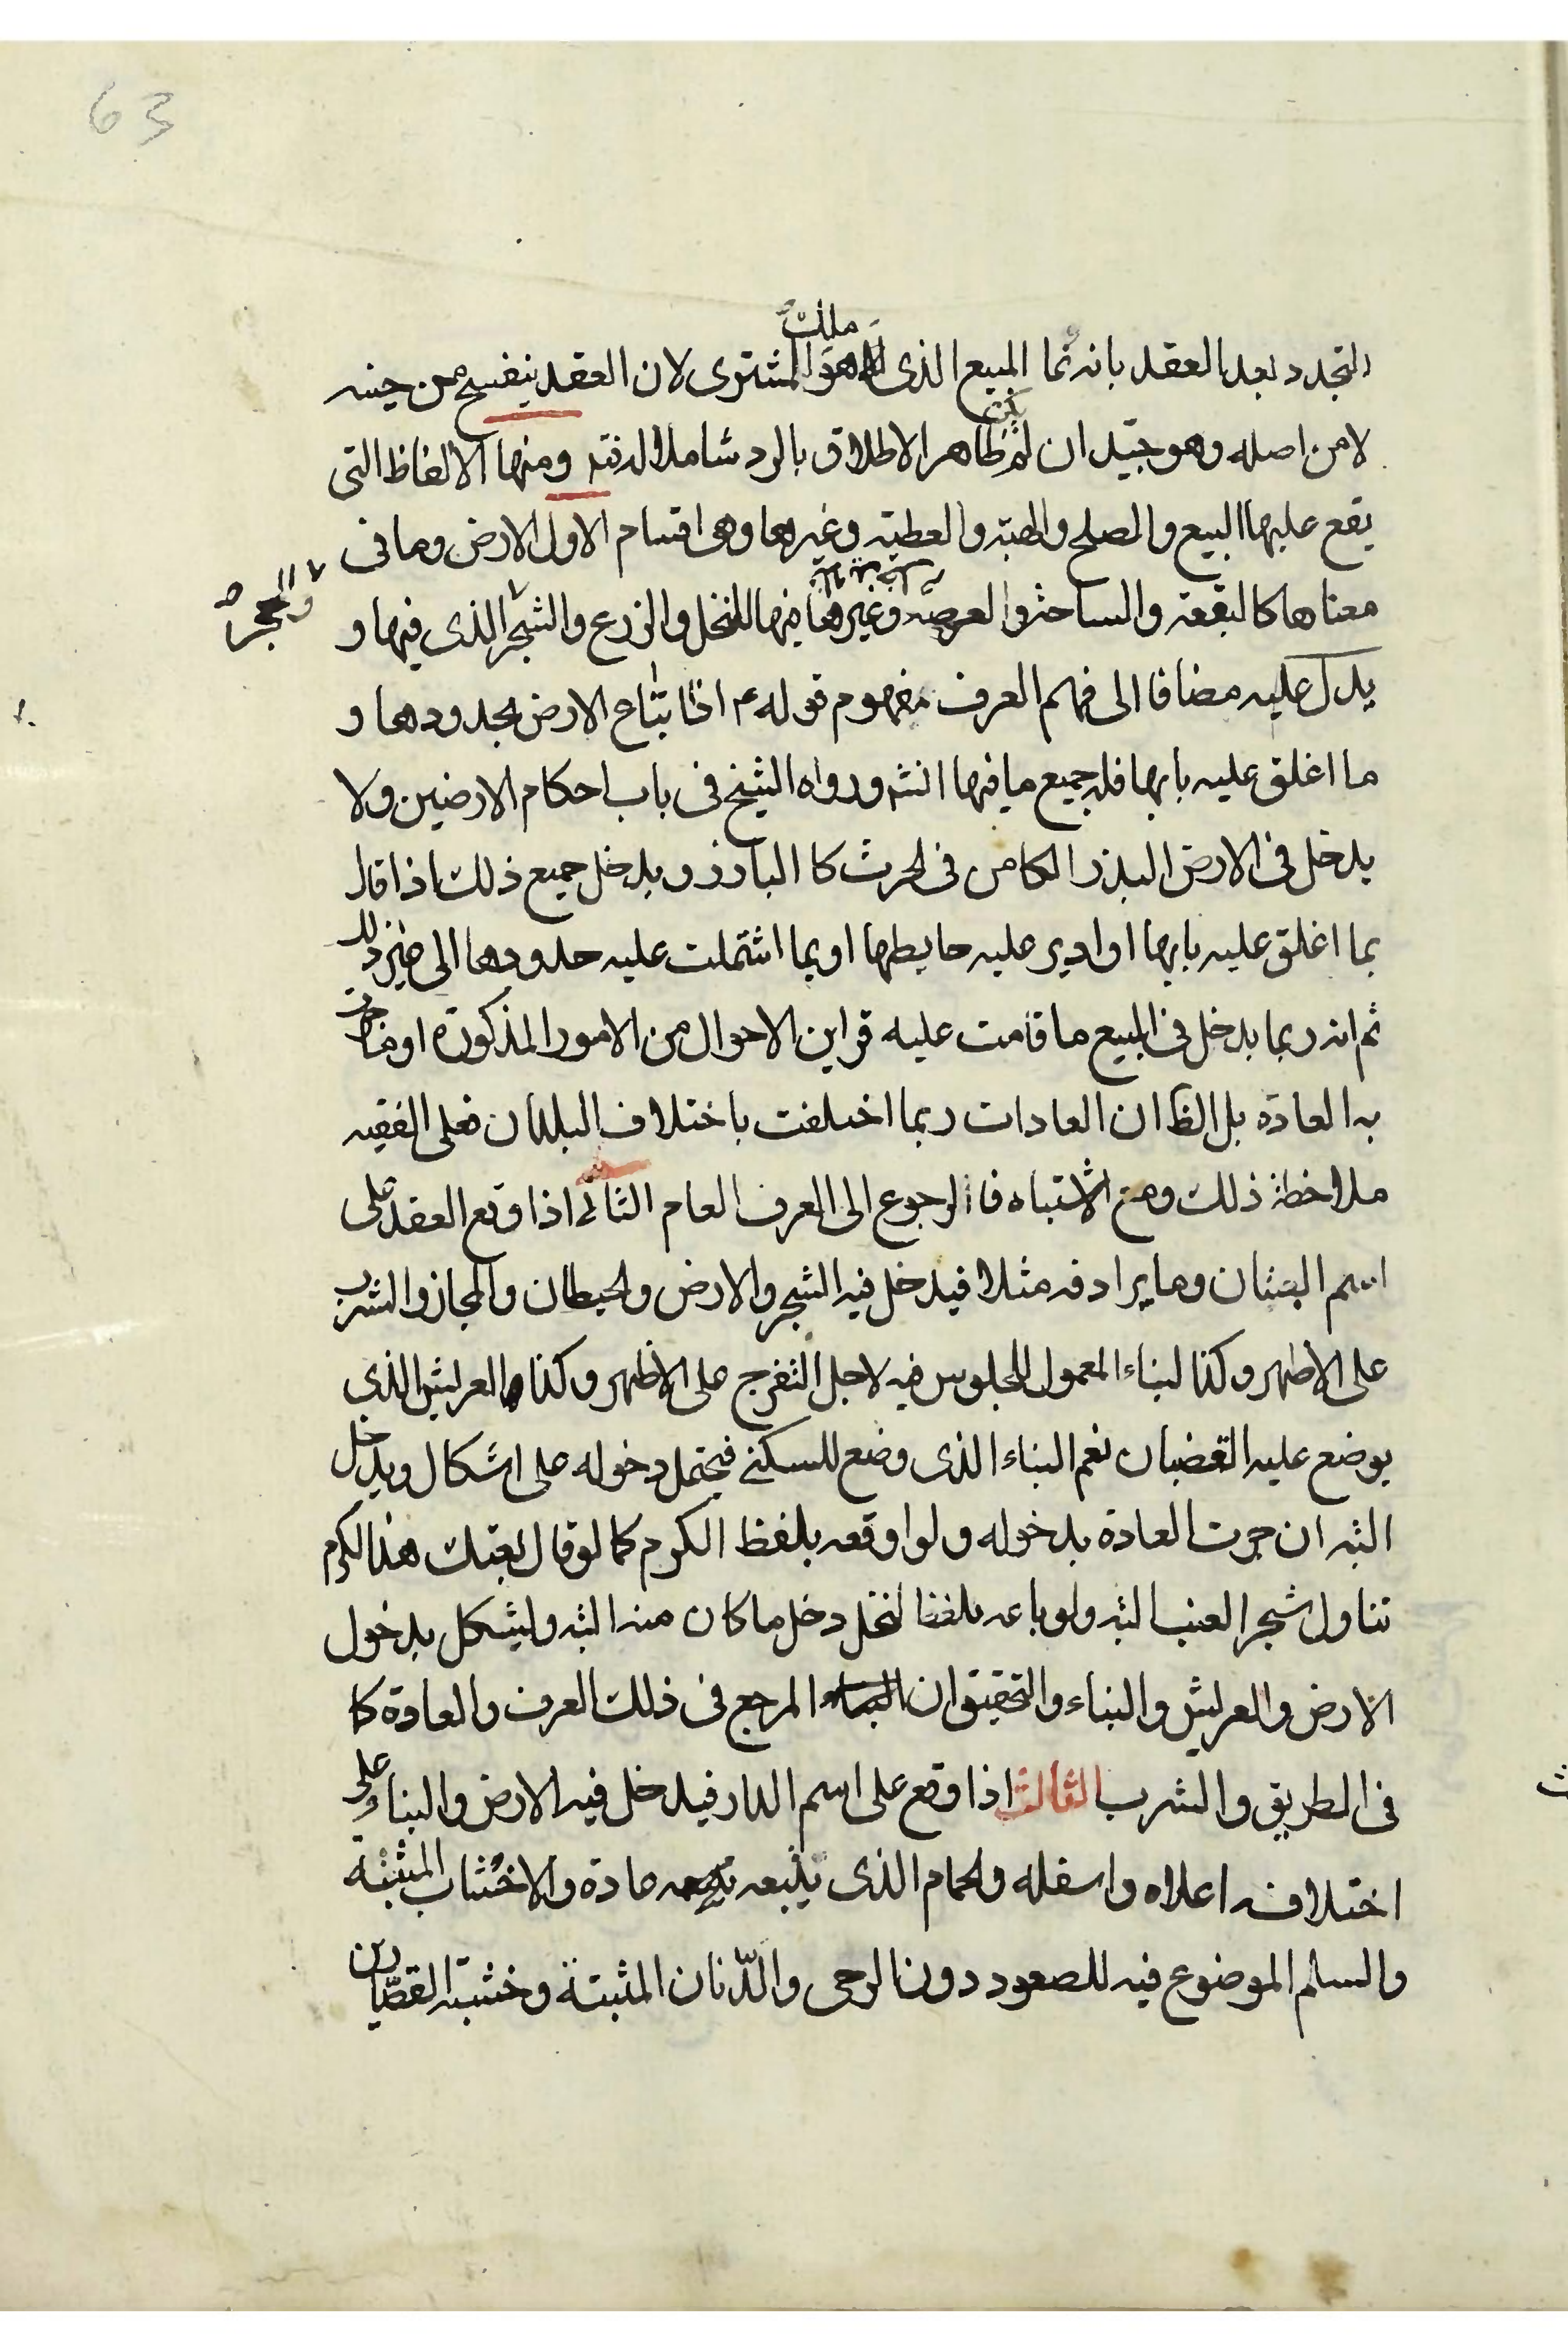 63
المتجدد بعد العقد بانه نما المبيع الذى هو ملك المشترى لان العقد ينفسخ من حينه
لا من اصله وهو جيّد ان لم يكن ظاهر الاطلاق بالرد شاملا لا ومنها الالفاظ التى
يقع عليها البيع والصلح والهبة والعطية وغيرها وهى اقسام الاول الارض وما فى
معناها كالبقعة والساحة والعرصة وغيرها فيها النخل والزرع والشجر الذى فيها و
والحجر صح
يدل عليه مضافا الى فهم العرف مفهوم قوله ع اذا ابتاع الارض بحدودها و
ما اغلق عليه بابها فله جميع ما فيها انتهى ورواه الشيخ فى باب احكام الارضين ولا
يدخل فى الارض البذر الكامن فى الحرث كا البارز ويدخل جميع ذلك اذا قال
بما اغلق عليه بابها او ادير عليه حايطها او بما اشتملت عليه حدودها الى غير ذلك
ثم انه ربما يدخل فى المبيع ما قامت عليه قراين الاحوال من الامور المذكورة او جرت
به العادة بل الظ ان العادات ربما اختلفت باختلاف البلدان فعلى الفقيه
ملاحظة ذلك ومع الاشتباه فالرجوع الى العرف العام الثانى اذا وقع العقد على
اسم البستان وما يرادفه مثلا فيدخل فيه الشجر والارض والحيطان والمجاز والشرب
على الاظهر وكذا البناء المعمول للجلوس فيه لاجل التفرج على الاظهر وكذا العريش الذى
يوضع عليه القضبان نعم البناء الذى وضع للسكنى فيحتمل دخوله على اشكال ويدخل
البته ان جرت العادة بدخوله ولو اوقعه بلفظ الكرم كما لو قال بعتك هذا الكرم
تناول شجر العنب البته ولو باعه بلفظ النخل دخل ما كان منه البته وليشكل بدخول
الارض والعريش والبناء والتحقيق ان المرجع فى ذلك العرف والعادة كا
فى الطريق والشرب الثالث اذا وقع على اسم الدار فيدخل فيه الارض والبناء على
اختلاف اعلاه واسفله والحمام الذى يتبعه عادة والاخشاب المثبتة
والسلم الموضوع فيه للصعود دون الرحى والدّنان المثبتة وخشبة القصّارين